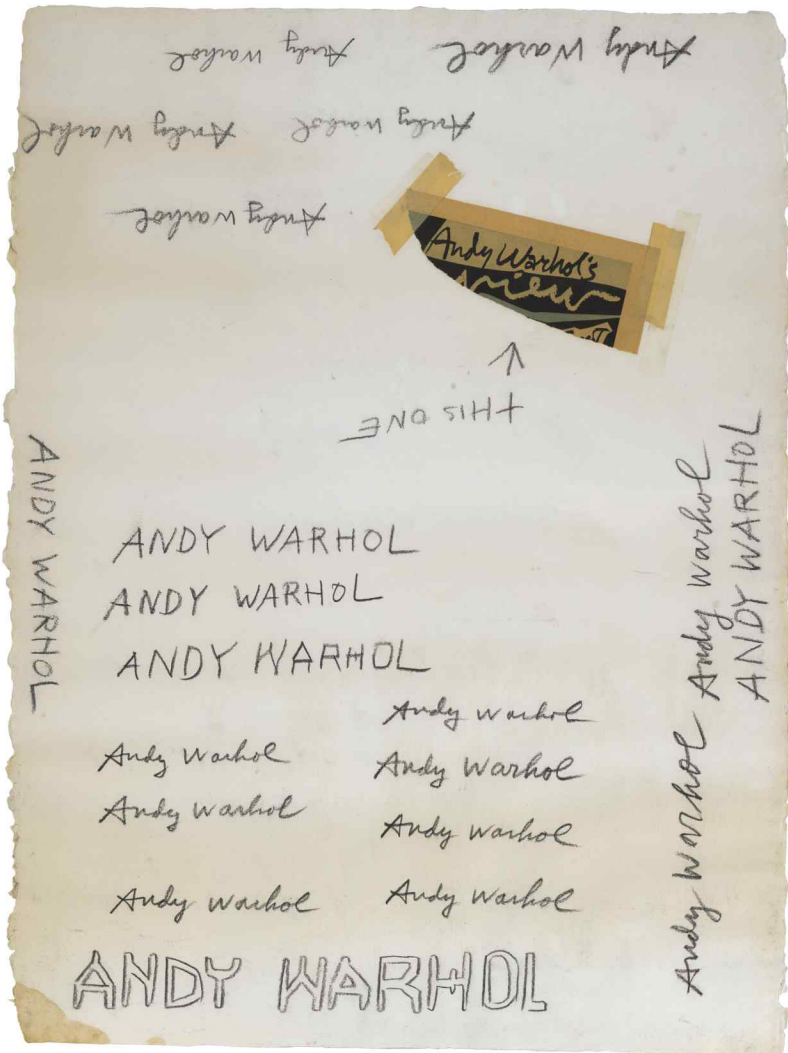 Andy Warhol
Andy Warhol
Andy Warhol
Andy Warhol
Andy Warhol
Andy Warhol's
view
THIS ONE
ANDY WARHOL
ANDY WARHOL
ANDY WARHOL
ANDY WARHOL
Andy Warhol
Andy Warhol
Andy Warhol
Andy Warhol
Andy Warhol
Andy Warhol
Andy Warhol
ANDY WARHOL
Andy Warhol
Andy Warhol
ANDY WARHOL